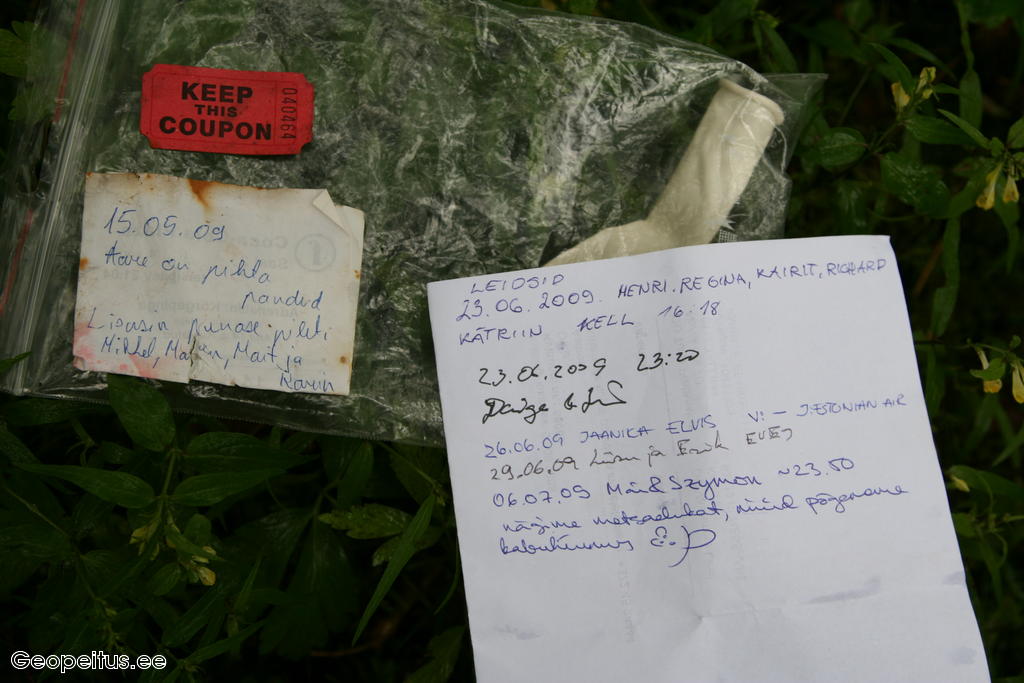 KEEP
THIS
COUPON
040464
15.05.09
Aare on pihta
pandud
Lisasin punase pileti
Mihkel, Marten, Mart ja
Karin
LEIDSID
23.06.2009. HENRI. REGINA, KAIRIT, RICHARD
KÄTRIIN KELL 16:18
23.06.2009 23:20
26.06.09 JAANIKA ELVIS V: — J.ESTONIAN AIR
29.06.09 Liisu ja Eerik
06.07.09 Mai & Szymon ~23.50
nägime metsaelukat, nüüd põgeneme
kabuhirmus
Geopeitus.ee